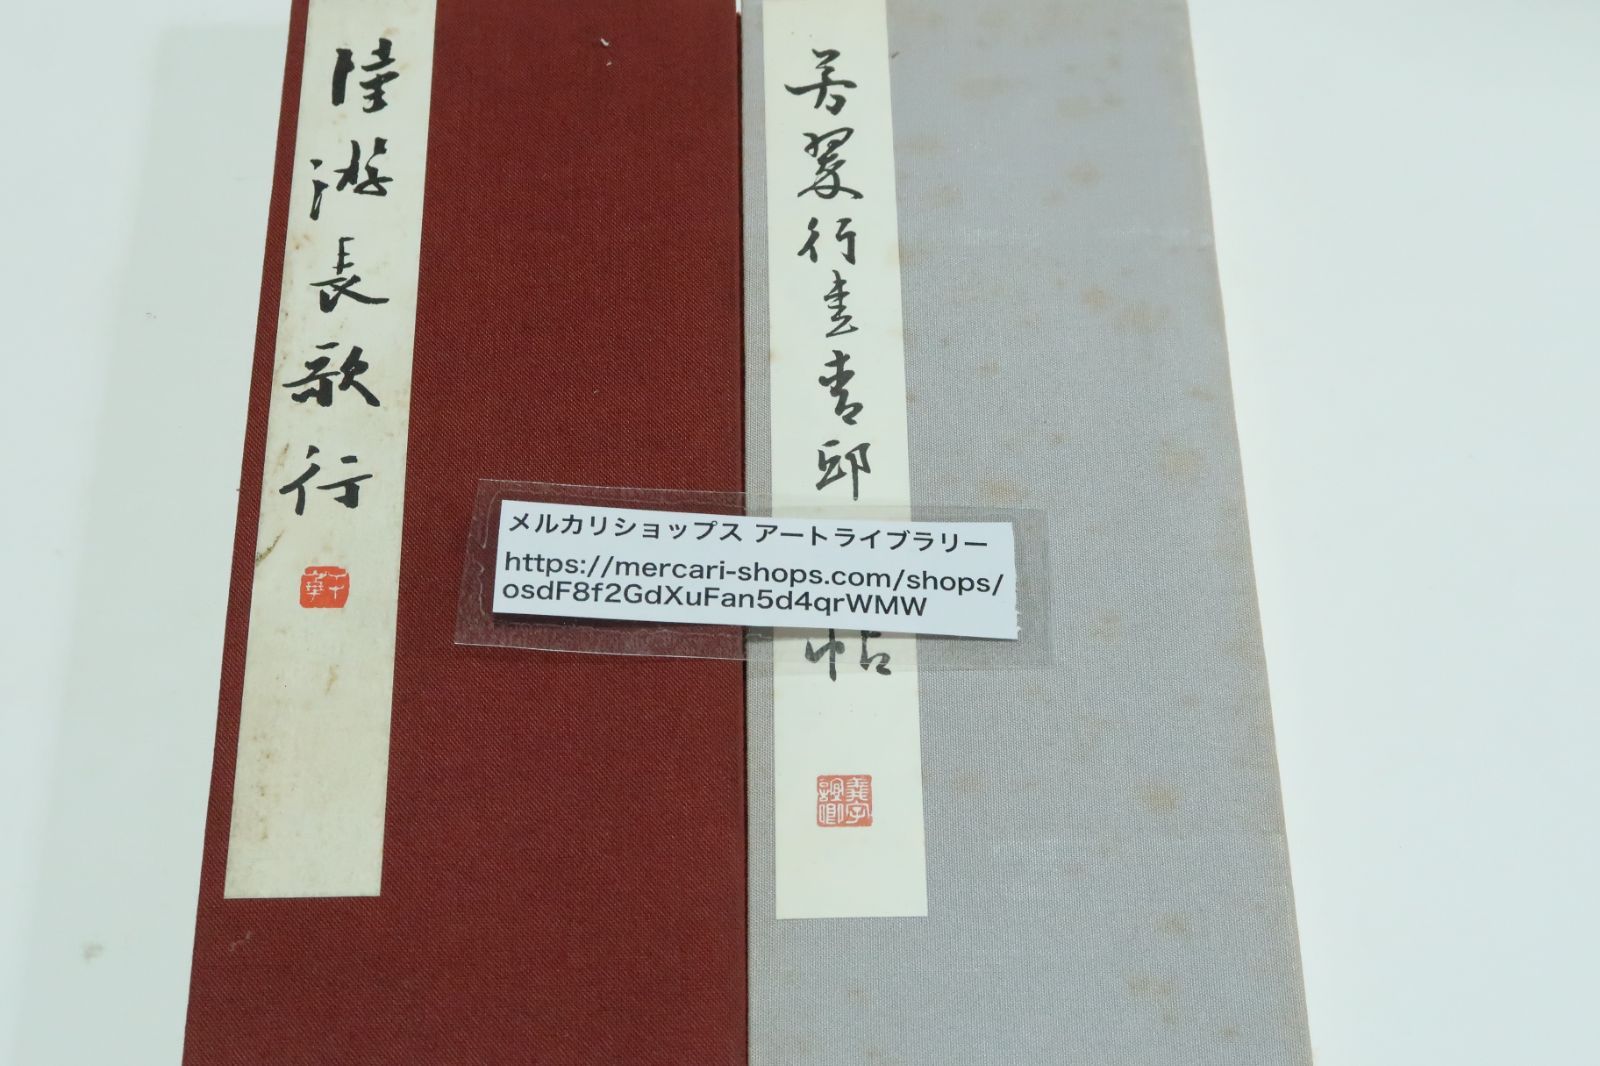 陸游長歌行
芳翠行書青邱
帖
メルカリショップス アートライブラリー
https://mercari-shops.com/shops/
osdF8f2GdXuFan5d4qrWMW